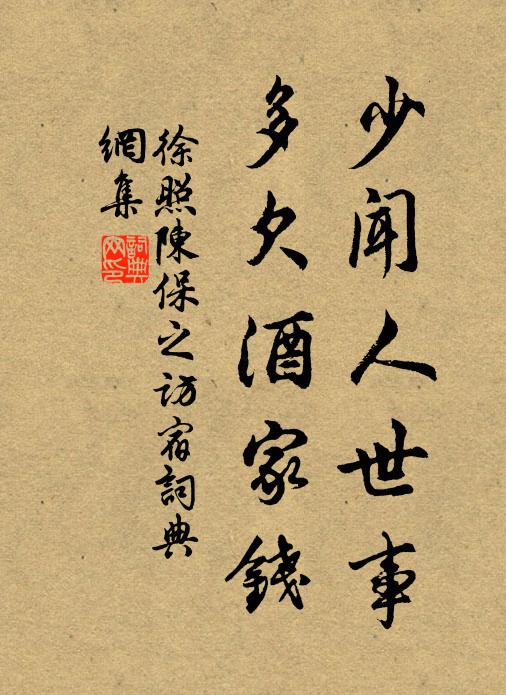 少聞人世事
多欠酒家錢
徐照陳保之訪宿詞典
網集
詞典
网印